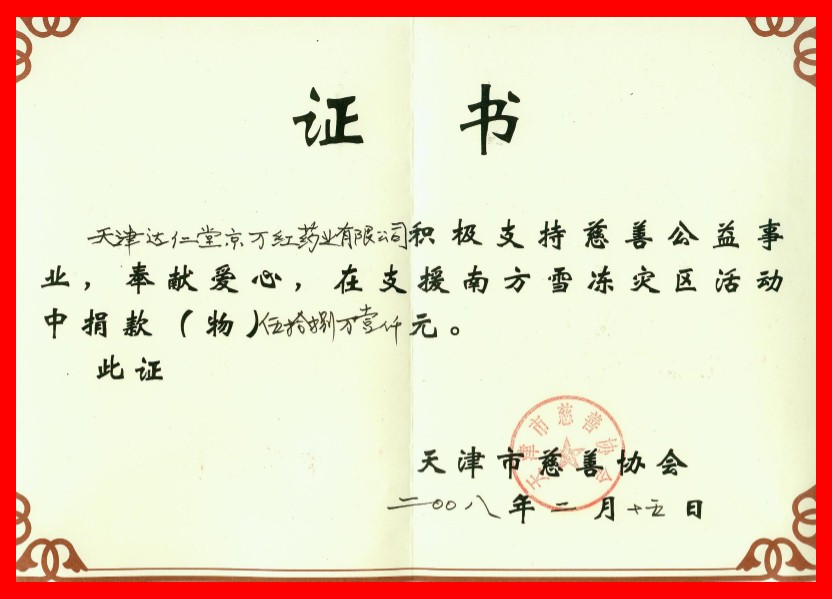 证 书
天津达仁堂京万红药业有限公司积极支持慈善公益事
业，奉献爱心，在支援南方雪冻灾区活动
中捐款（物）伍拾捌万壹仟元。
此证
天津市慈善协会
天津市慈善协会
二〇〇八年二月十五日